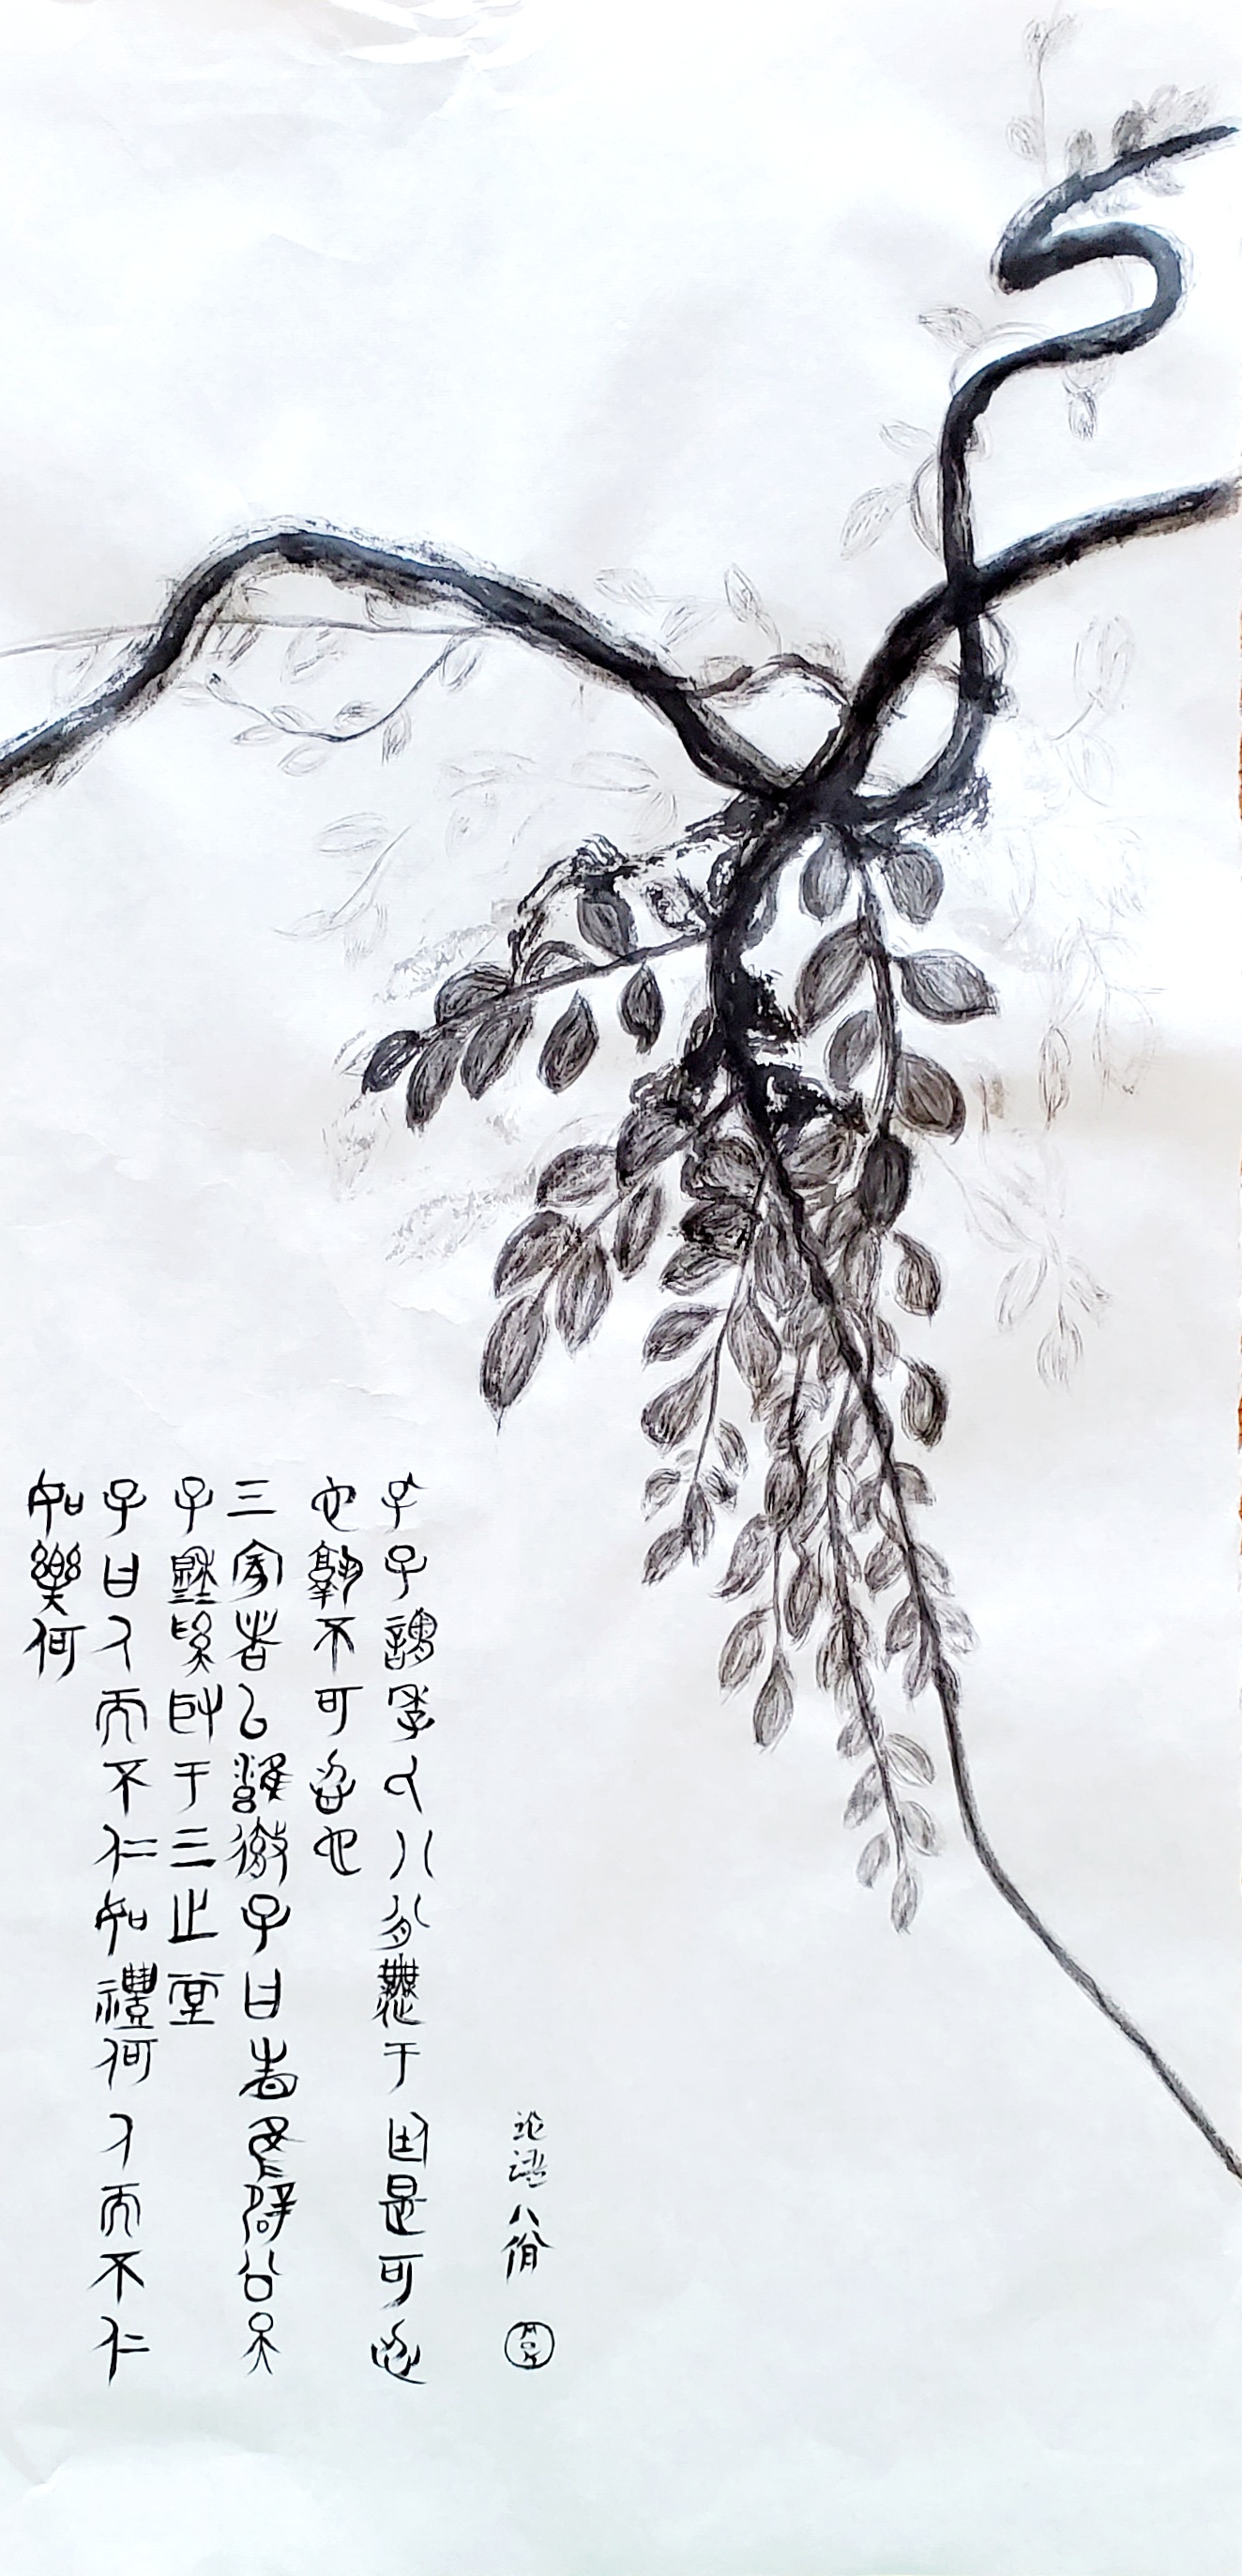 論語八佾
孔子謂季氏八佾舞于廷是可忍
也孰不可忍也
三家者以雍徹子曰辟公天
子奚取于三之堂
子曰人而不仁如禮何人而不仁
如樂何